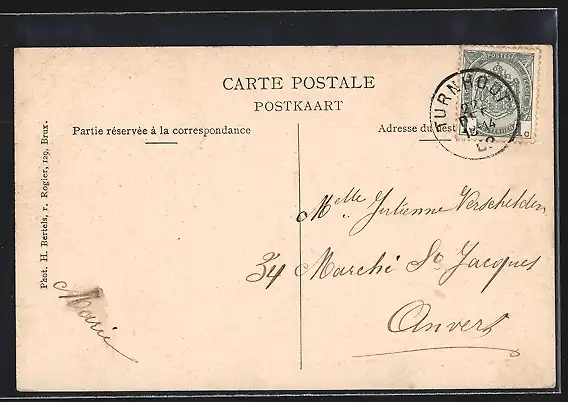 CARTE POSTALE
POSTKAART
Partie réservée à la correspondance
Adresse du dest
TURNHOUT
Phot. H. Bertels, r. Rogier, 129, Brux.
Marie
Melle Julienne Verschelden
34 Marché St Jacques
Anvers